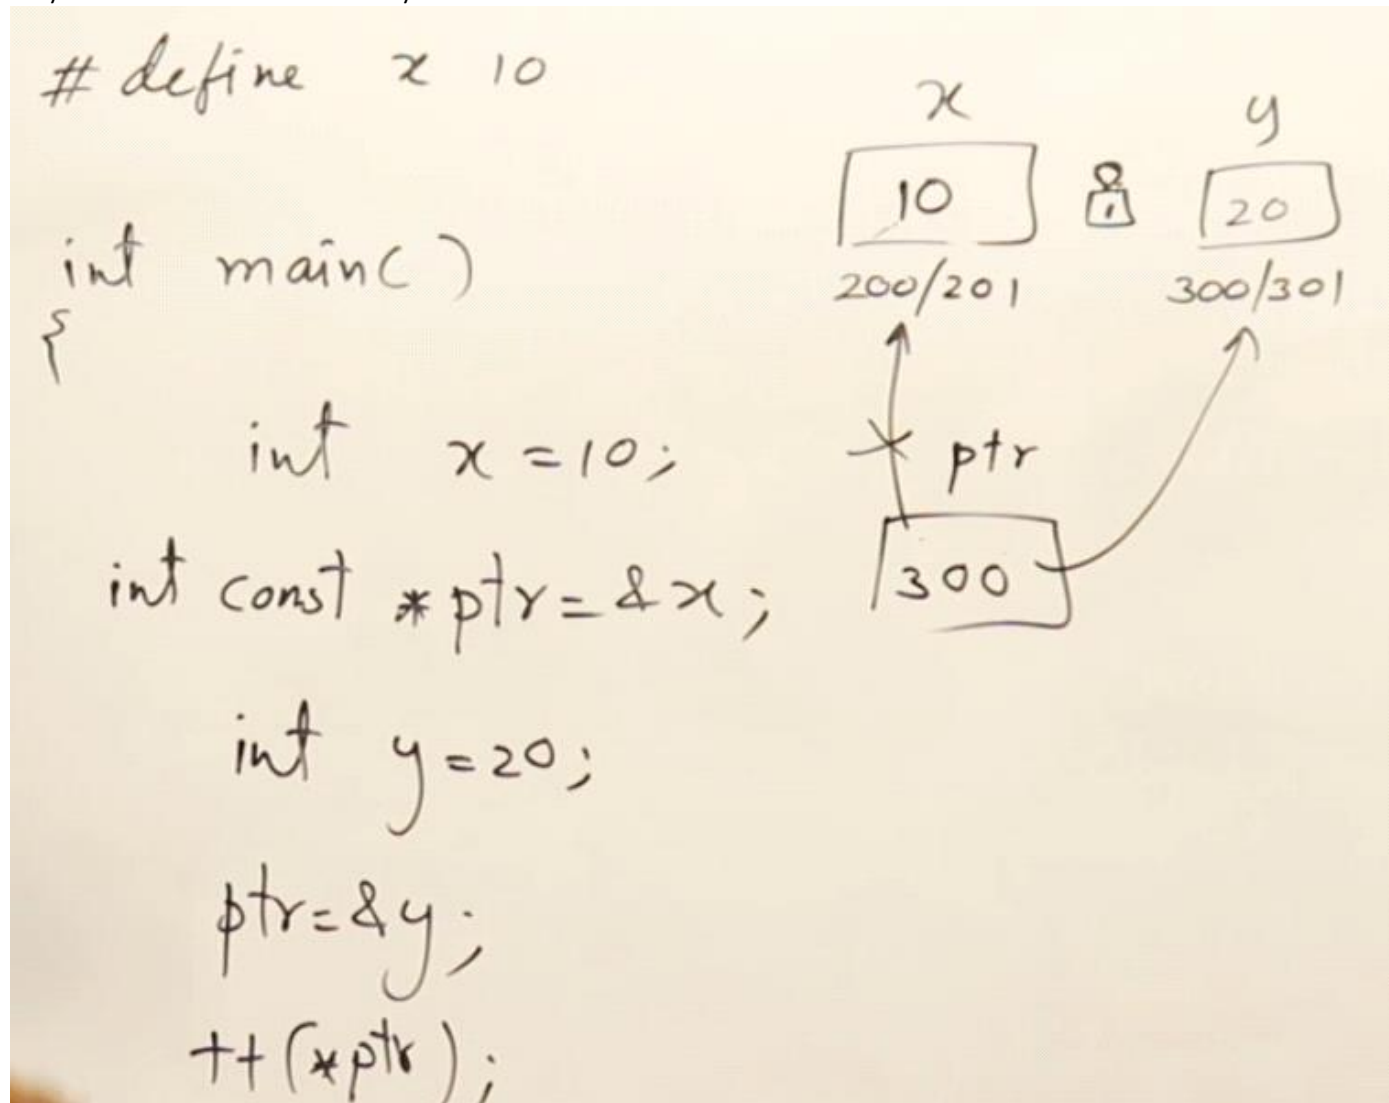 # define x 10
int main( )
{
int x = 10;
int const *ptr = &x;
int y = 20;
ptr = &y;
++(*ptr);
x
10
200/201
y
20
300/301
ptr
300